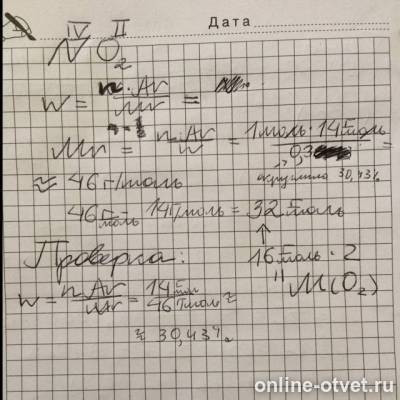 Дата
IV II
NO₂
W = n·Ar / Mr =
Mr = n·Ar / W = 1моль·14г/моль / 0,3 =
округлила 30,43%
≈ 46 г/моль
46г/моль - 14г/моль = 32г/моль
↑
Проверка: 16г/моль · 2
" M(O₂)
W = n·Ar / Mr = 14г/моль / 46г/моль ≈
≈ 30,43%
online-otvet.ru